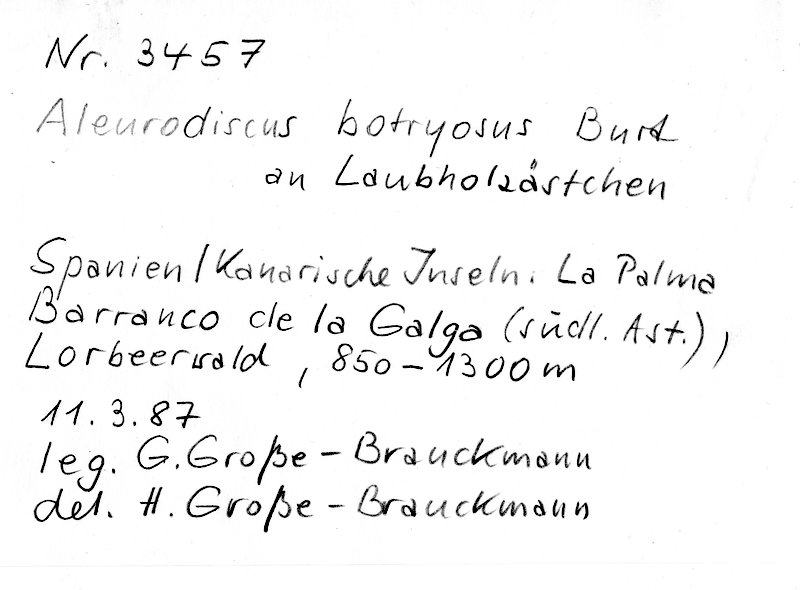 Nr. 3457
Aleurodiscus botryosus Burt
an Laubholzästchen
Spanien/Kanarische Inseln: La Palma
Barranco de la Galga (südl. Ast.),
Lorbeerwald, 850-1300 m
11.3.87
leg. G. Große-Brauckmann
det. H. Große-Brauckmann